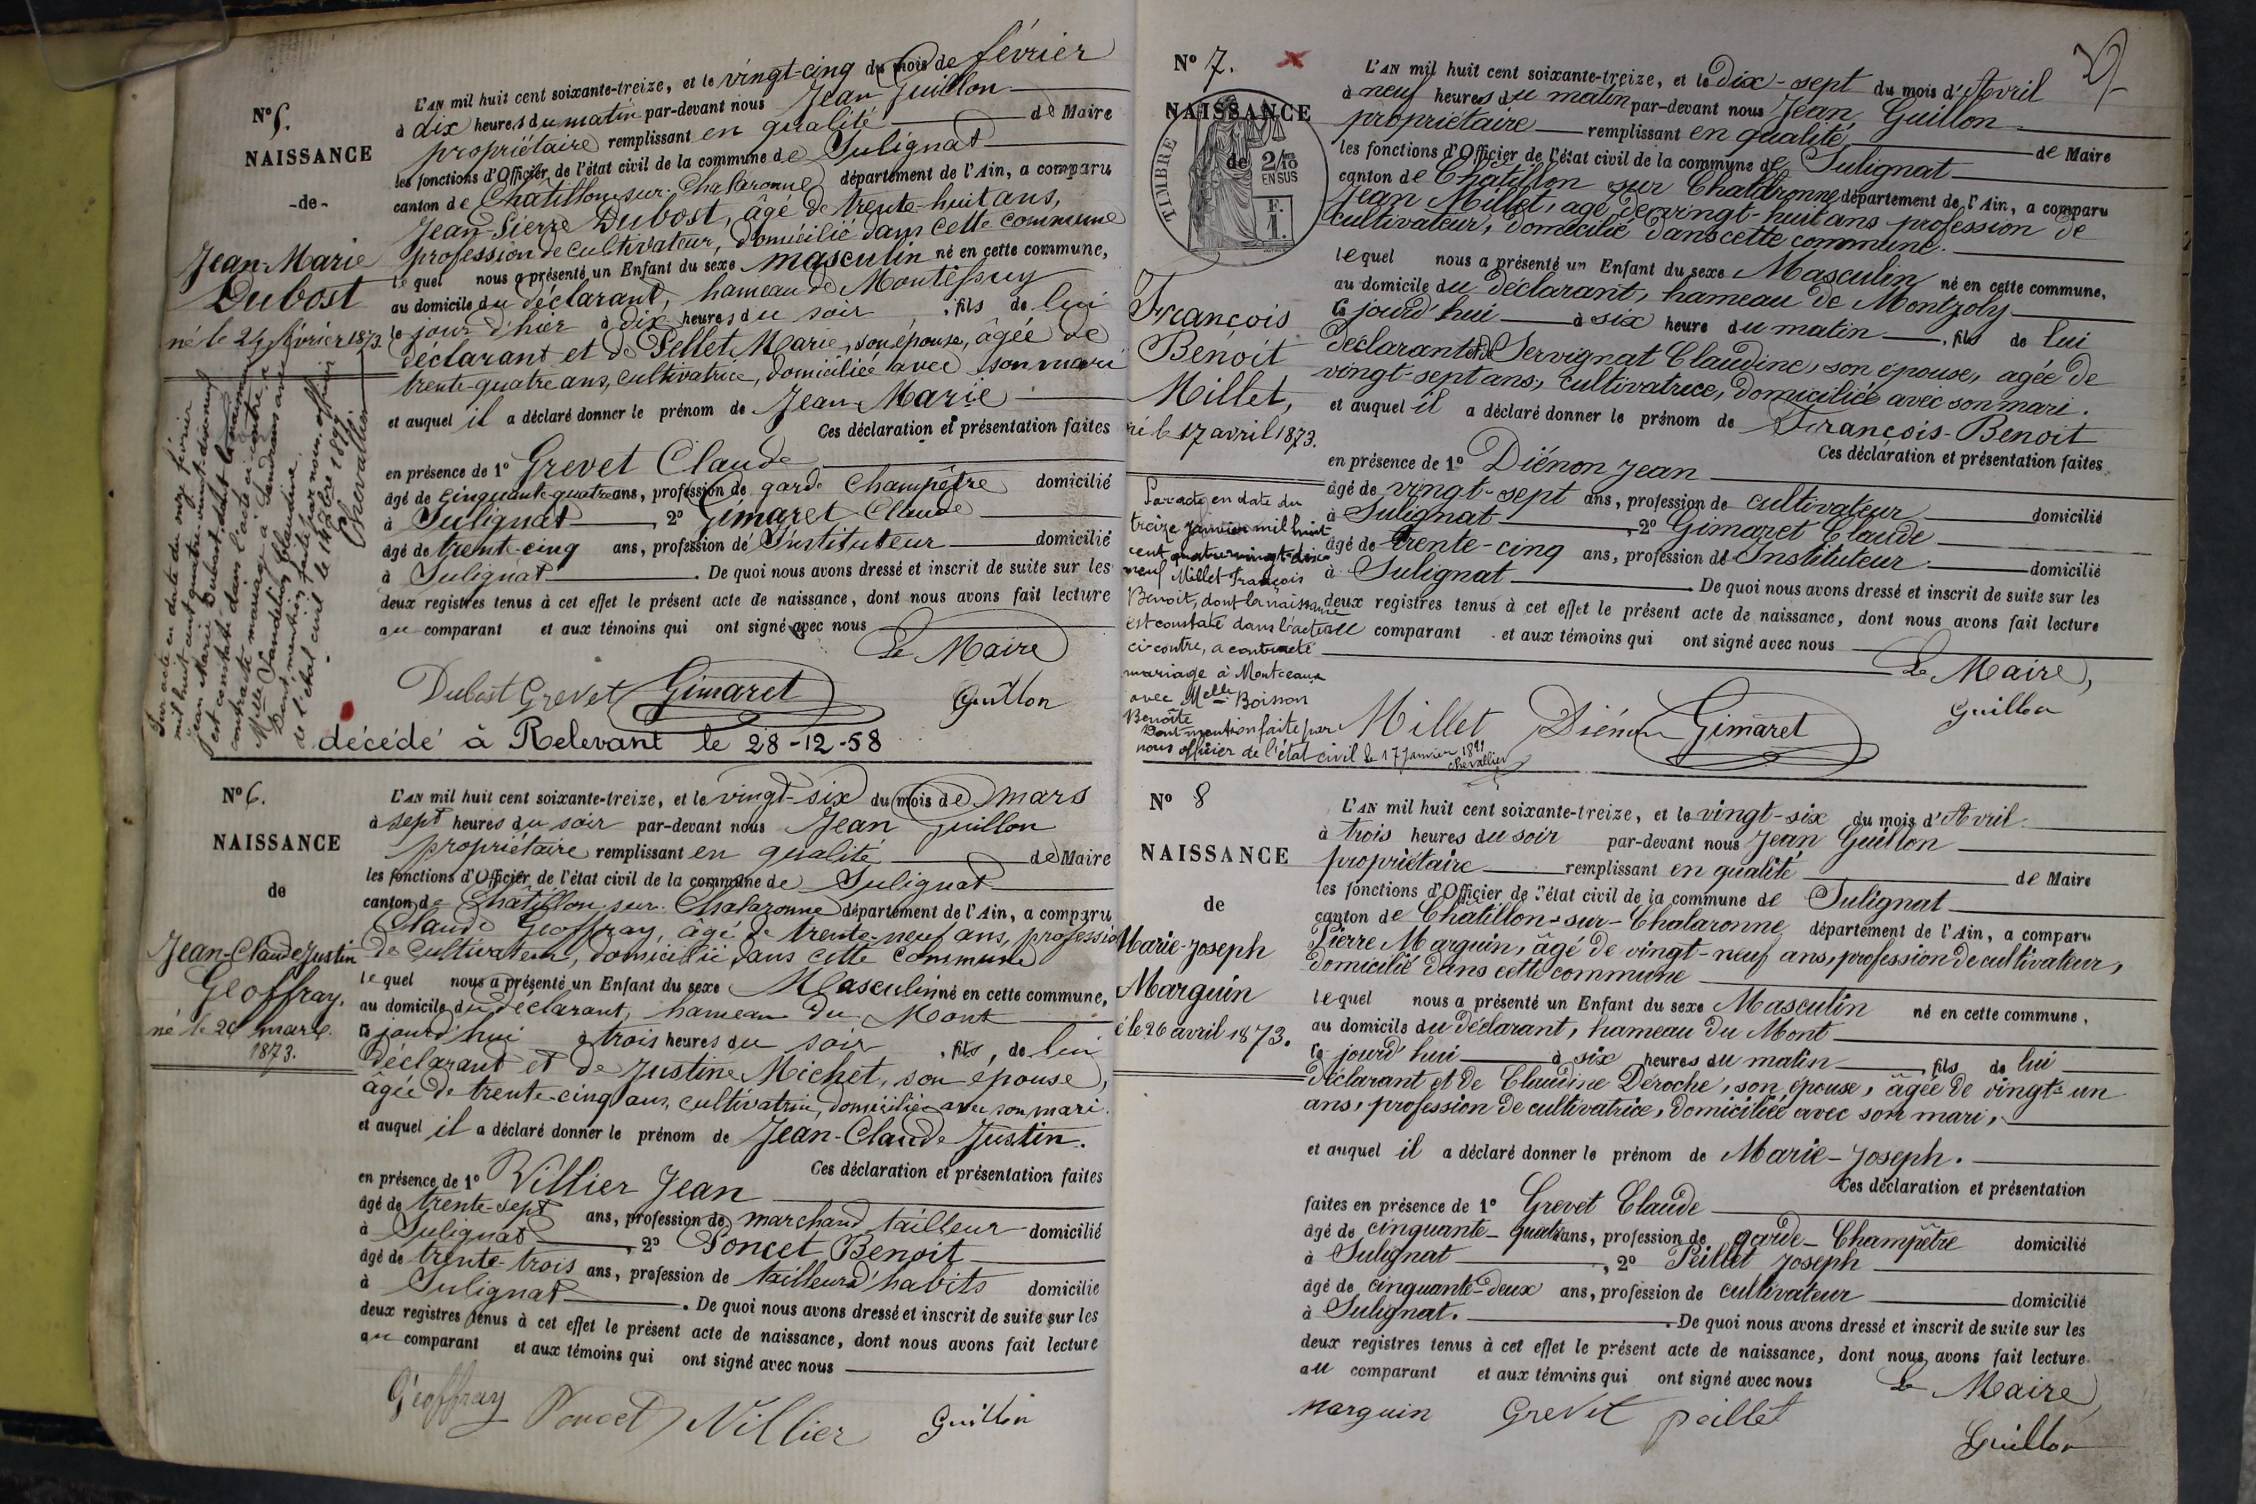 N° 5.
NAISSANCE
-de-
Jean-Marie
Dubost
né le 24 février 1873
L'AN mil huit cent soixante-treize, et le vingt-cinq du mois de février
à dix heures du matin par-devant nous Jean Guillon
propriétaire remplissant en qualité de Maire
les fonctions d'Officier de l'état civil de la commune de Sulignat
canton de Châtillon-sur-Chalaronne département de l'Ain, a comparu
Jean-Pierre Dubost, âgé de trente-huit ans,
profession de cultivateur, domicilié dans cette commune
lequel nous a présenté un Enfant du sexe masculin né en cette commune,
au domicile du déclarant, hameau de Montessuy
le jour d'hier à dix heures du soir, fils de lui
déclarant et de Pellet Marie, son épouse, âgée de
trente-quatre ans, cultivatrice, domiciliée avec son mari
et auquel il a déclaré donner le prénom de Jean-Marie
Ces déclaration et présentation faites
en présence de 1° Grevet Claude
âgé de cinquante-quatre ans, profession de garde champêtre domicilié
à Sulignat, 2° Gimaret Claude
âgé de trente-cinq ans, profession de Instituteur domicilié
à Sulignat. De quoi nous avons dressé et inscrit de suite sur les
deux registres tenus à cet effet le présent acte de naissance, dont nous avons fait lecture
au comparant et aux témoins qui ont signé avec nous
Le Maire
Dubost Grevet Gimaret Guillon
Par acte en date du onze février
mil huit cent quatre-vingt-dix-neuf
Jean Marie Dubost dont la naissance
est constatée dans l'acte ci-contre a
contracté mariage à Sandrans avec
Melle Vandelion Claudine.
Dont mention faite par nous officier
de l'état civil le
Chevallier
décédé à Relevant le 28-12-58
N° 6.
NAISSANCE
de
Jean-Claude Justin
Geoffray.
né le 26 mars
1873.
L'AN mil huit cent soixante-treize, et le vingt-six du mois de mars
à sept heures du soir par-devant nous Jean Guillon
propriétaire remplissant en qualité de Maire
les fonctions d'Officier de l'état civil de la commune de Sulignat
canton de Châtillon-sur-Chalaronne département de l'Ain, a comparu
Claude Geoffray, âgé de trente-neuf ans, profession
de cultivateur, domicilié dans cette commune
lequel nous a présenté un Enfant du sexe Masculin né en cette commune,
au domicile du déclarant, hameau du Mont
ce jourd'hui à trois heures du soir, fils, de lui
déclarant et de Justine Michet, son épouse,
âgée de trente-cinq ans, cultivatrice, domiciliée avec son mari.
et auquel il a déclaré donner le prénom de Jean-Claude Justin.
Ces déclaration et présentation faites
en présence de 1° Villier Jean
âgé de trente-sept ans, profession de marchand tailleur domicilié
à Sulignat, 2° Poncet Benoit
âgé de trente-trois ans, profession de tailleur d'habits domicilié
à Sulignat. De quoi nous avons dressé et inscrit de suite sur les
deux registres tenus à cet effet le présent acte de naissance, dont nous avons fait lecture
au comparant et aux témoins qui ont signé avec nous
Geoffray Poncet Villier Guillon
N° 7.
NAISSANCE
de
TIMBRE
2/10 EN SUS
F. 1.
François
Benoit
Millet,
né le 17 avril 1873.
L'AN mil huit cent soixante-treize, et le dix-sept du mois d'Avril
à neuf heures du matin par-devant nous Jean Guillon
propriétaire remplissant en qualité de Maire
les fonctions d'Officier de l'état civil de la commune de Sulignat
canton de Châtillon sur Chalaronne département de l'Ain, a comparu
Jean Millet, âgé de vingt-huit ans profession de
cultivateur, domicilié dans cette commune.
lequel nous a présenté un Enfant du sexe Masculin né en cette commune,
au domicile du déclarant, hameau de Montzoly
ce jourd'hui à six heure du matin, fils de lui
déclarant et de Servignat Claudine, son épouse, agée de
vingt-sept ans, cultivatrice, domiciliée avec son mari.
et auquel il a déclaré donner le prénom de François-Benoit
Ces déclaration et présentation faites
en présence de 1° Diénon Jean
âgé de vingt-sept ans, profession de cultivateur domicilié
à Sulignat, 2° Gimaret Claude
âgé de trente-cinq ans, profession de Instituteur domicilié
à Sulignat. De quoi nous avons dressé et inscrit de suite sur les
deux registres tenus à cet effet le présent acte de naissance, dont nous avons fait lecture
au comparant et aux témoins qui ont signé avec nous
Le Maire,
Millet Diénon Gimaret Guillon
Par acte en date du
treize janvier mil huit
cent quatre-vingt-dix-
neuf Millet François
Benoit, dont la naissance
est constaté dans l'acte
ci-contre, a contracté
mariage à Montceaux
avec Melle Boisson
Benoîte
Dont mention faite par
nous officier de l'état civil le 17 Janvier 1899
Chevallier
N° 8
NAISSANCE
de
Marie-Joseph
Marguin
né le 26 avril 1873.
L'AN mil huit cent soixante-treize, et le vingt-six du mois d'Avril
à trois heures du soir par-devant nous Jean Guillon
propriétaire remplissant en qualité de Maire
les fonctions d'Officier de l'état civil de la commune de Sulignat
canton de Châtillon-sur-Chalaronne département de l'Ain, a comparu
Pierre Marguin, âgé de vingt-neuf ans, profession de cultivateur,
domicilié dans cette commune
lequel nous a présenté un Enfant du sexe Masculin né en cette commune,
au domicile du déclarant, hameau du Mont
ce jourd'hui à six heures du matin, fils de lui
déclarant et de Claudine Déroche, son épouse, âgée de vingt-un
ans, profession de cultivatrice, domiciliée avec son mari,
et auquel il a déclaré donner le prénom de Marie-Joseph.
Ces déclaration et présentation
faites en présence de 1° Grevet Claude
âgé de cinquante-quatre ans, profession de garde-Champêtre domicilié
à Sulignat, 2° Peillet Joseph
âgé de cinquante-deux ans, profession de cultivateur domicilié
à Sulignat. De quoi nous avons dressé et inscrit de suite sur les
deux registres tenus à cet effet le présent acte de naissance, dont nous avons fait lecture
au comparant et aux témoins qui ont signé avec nous
Le Maire
marguin Grevet peillet Guillon